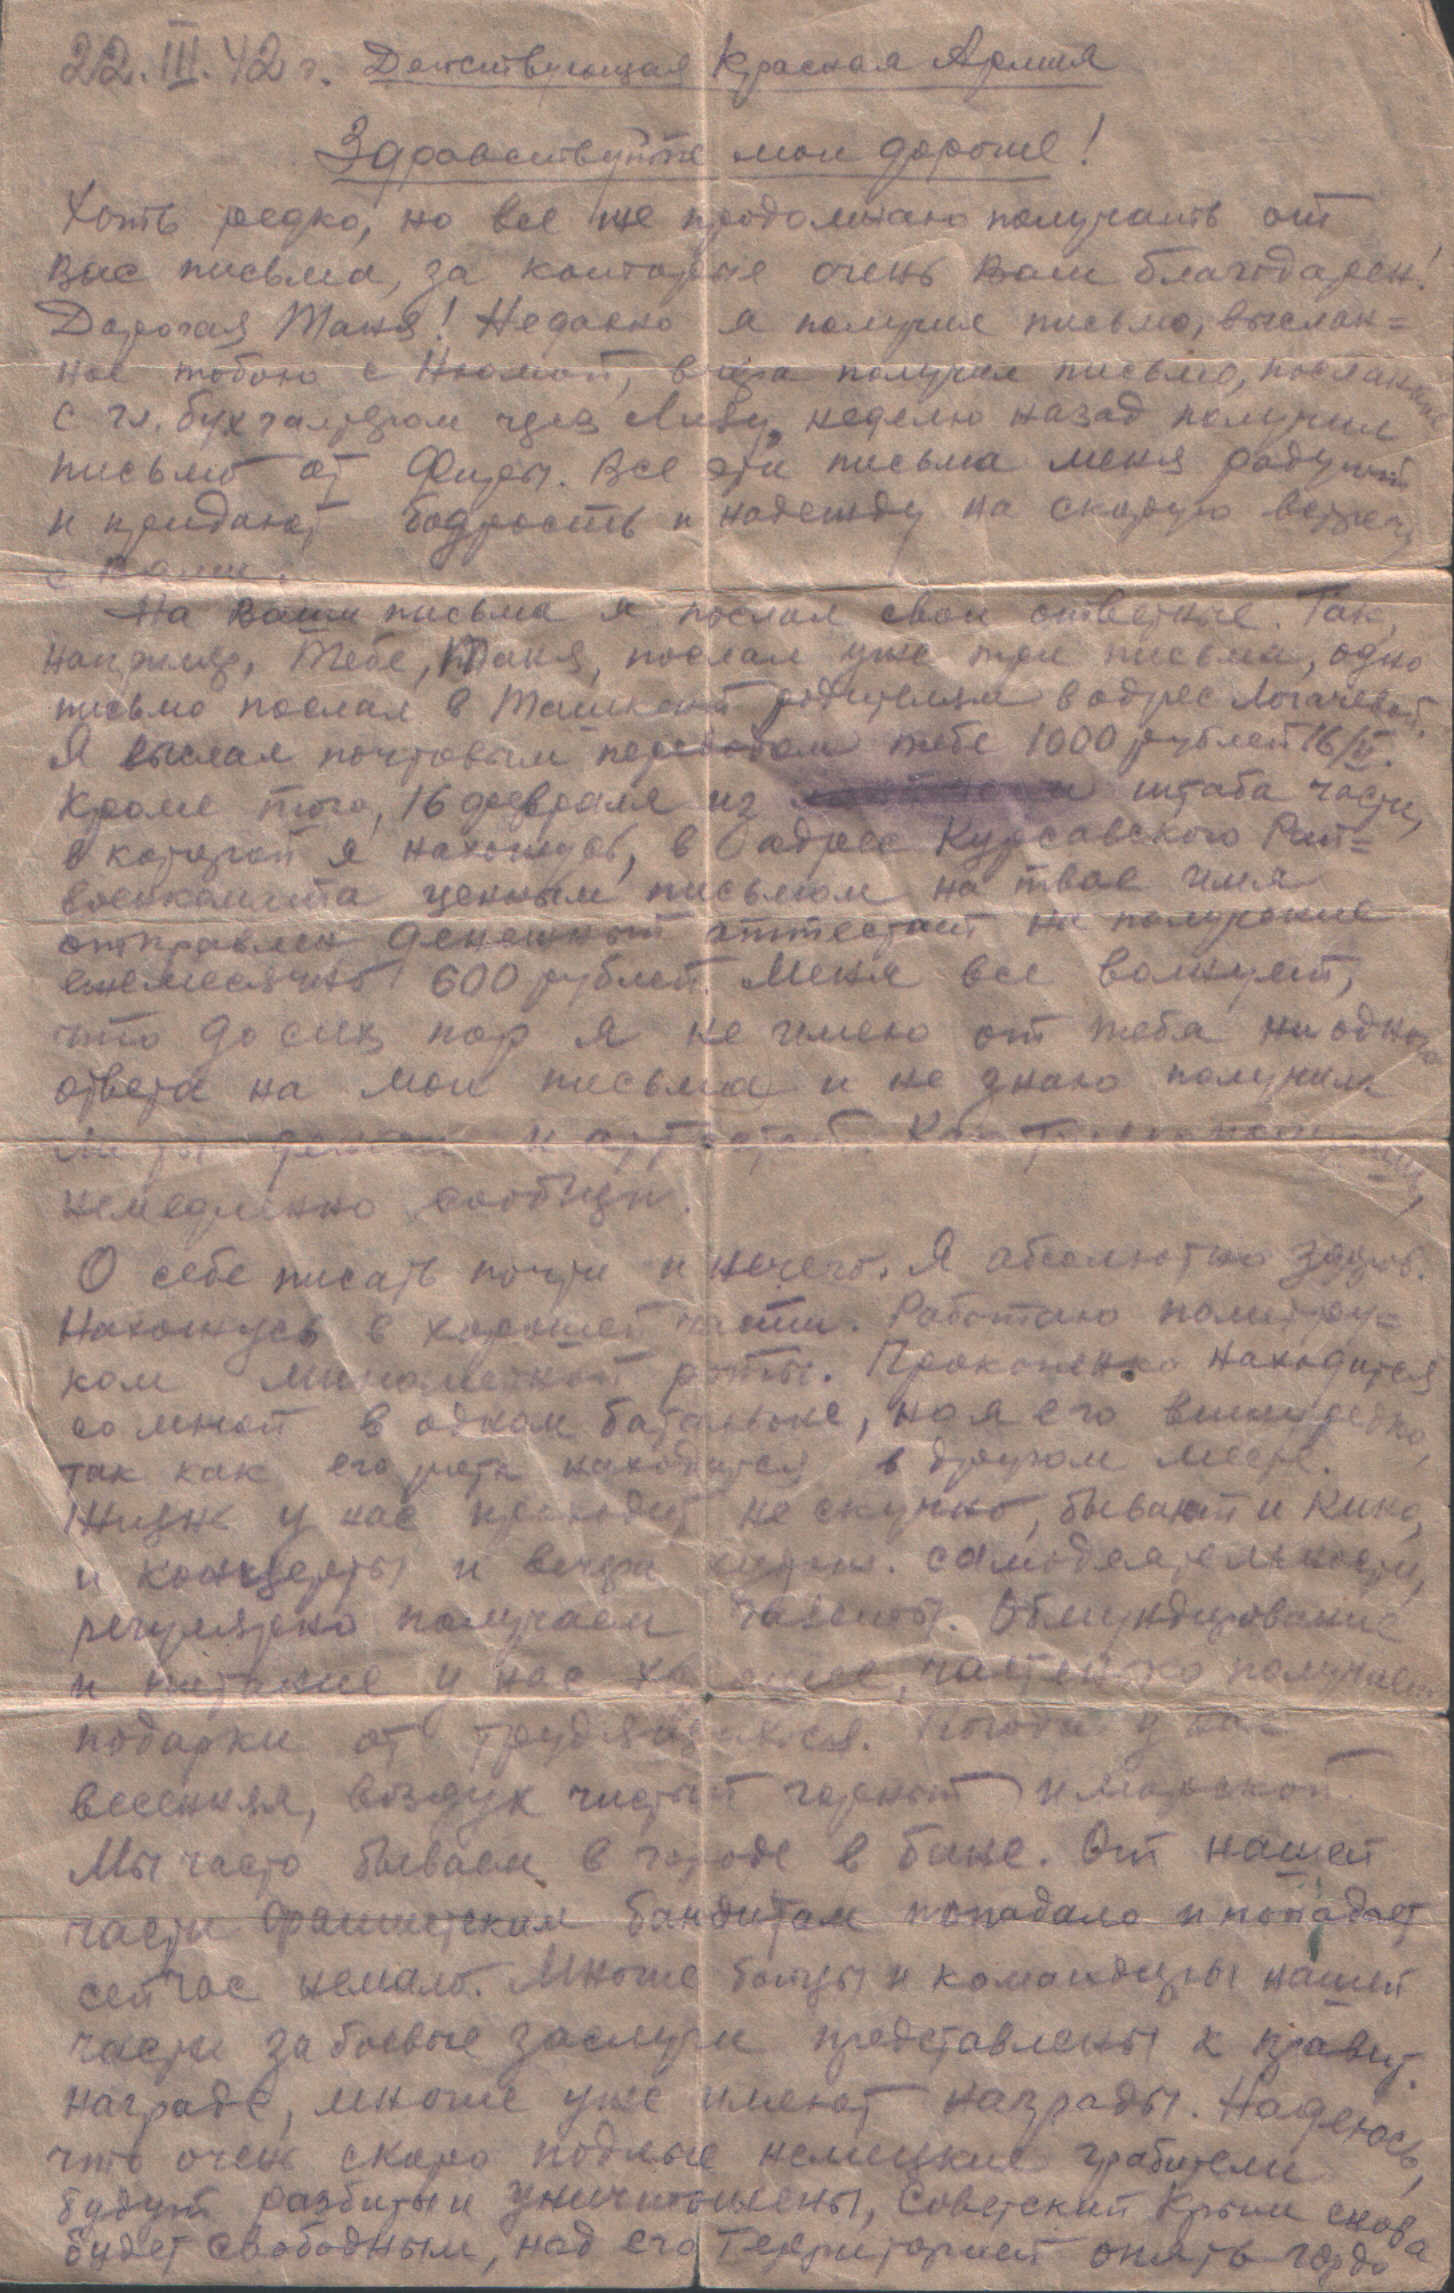 22.III.42 г. Действующая Красная Армия
Здравствуйте мои дорогие!
Хоть редко, но все же продолжаю получать от
Вас письма, за которые очень Вам благодарен!
Дорогая Таня! Недавно я получил письмо, выслан=
ное тобою с Нюмой, вчера получил письмо, посланное
с гл. бухгалтером через Любу, неделю назад получил
письмо от Фиры. Все эти письма меня радуют
и придают бодрость и надежду на скорую встречу
с Вами.
На Ваши письма я послал свои ответные. Так,
например, Тебе, Таня, послал уже три письма, одно
письмо послал в Ташкент родителям в адрес Логачевой.
Я выслал почтовым переводом тебе 1000 рублей 16/II.
Кроме того, 16 февраля из штаба части,
в которой я нахожусь, в адрес Курсавского Рай=
военкомата ценным письмом на твое имя
отправлен денежный аттестат на получение
ежемесячно 600 рублей. Меня все волнует,
что до сих пор я не имею от тебя ни одного
ответа на мои письма и не знаю получила
ли ты деньги и аттестат. Как только получишь,
немедленно сообщи.
О себе писать почти и нечего. Я абсолютно здоров.
Нахожусь в хорошей части. Работаю политру=
ком минометной роты. Прокопенко находится
со мной в одном батальоне, но я его вижу редко,
так как его рота находится в другом месте.
Жизнь у нас проходит не скучно, бывают и кино,
и концерты и вечера худож. самодеятельности,
регулярно получаем газеты. Обмундирование
и питание у нас хорошее, частенько получаем
подарки от трудящихся. Погода у нас
весенняя, воздух чистый горный и морской.
Мы часто бываем в городе в бане. От нашей
части фашистским бандитам попадало и попадает
сейчас немало. Многие бойцы и командиры нашей
части за боевые заслуги представлены к правит.
награде, многие уже имеют награды. Надеюсь,
что очень скоро подлые немецкие грабители
будут разбиты и уничтожены, Советский Крым снова
будет свободным, над его территорией опять гордо